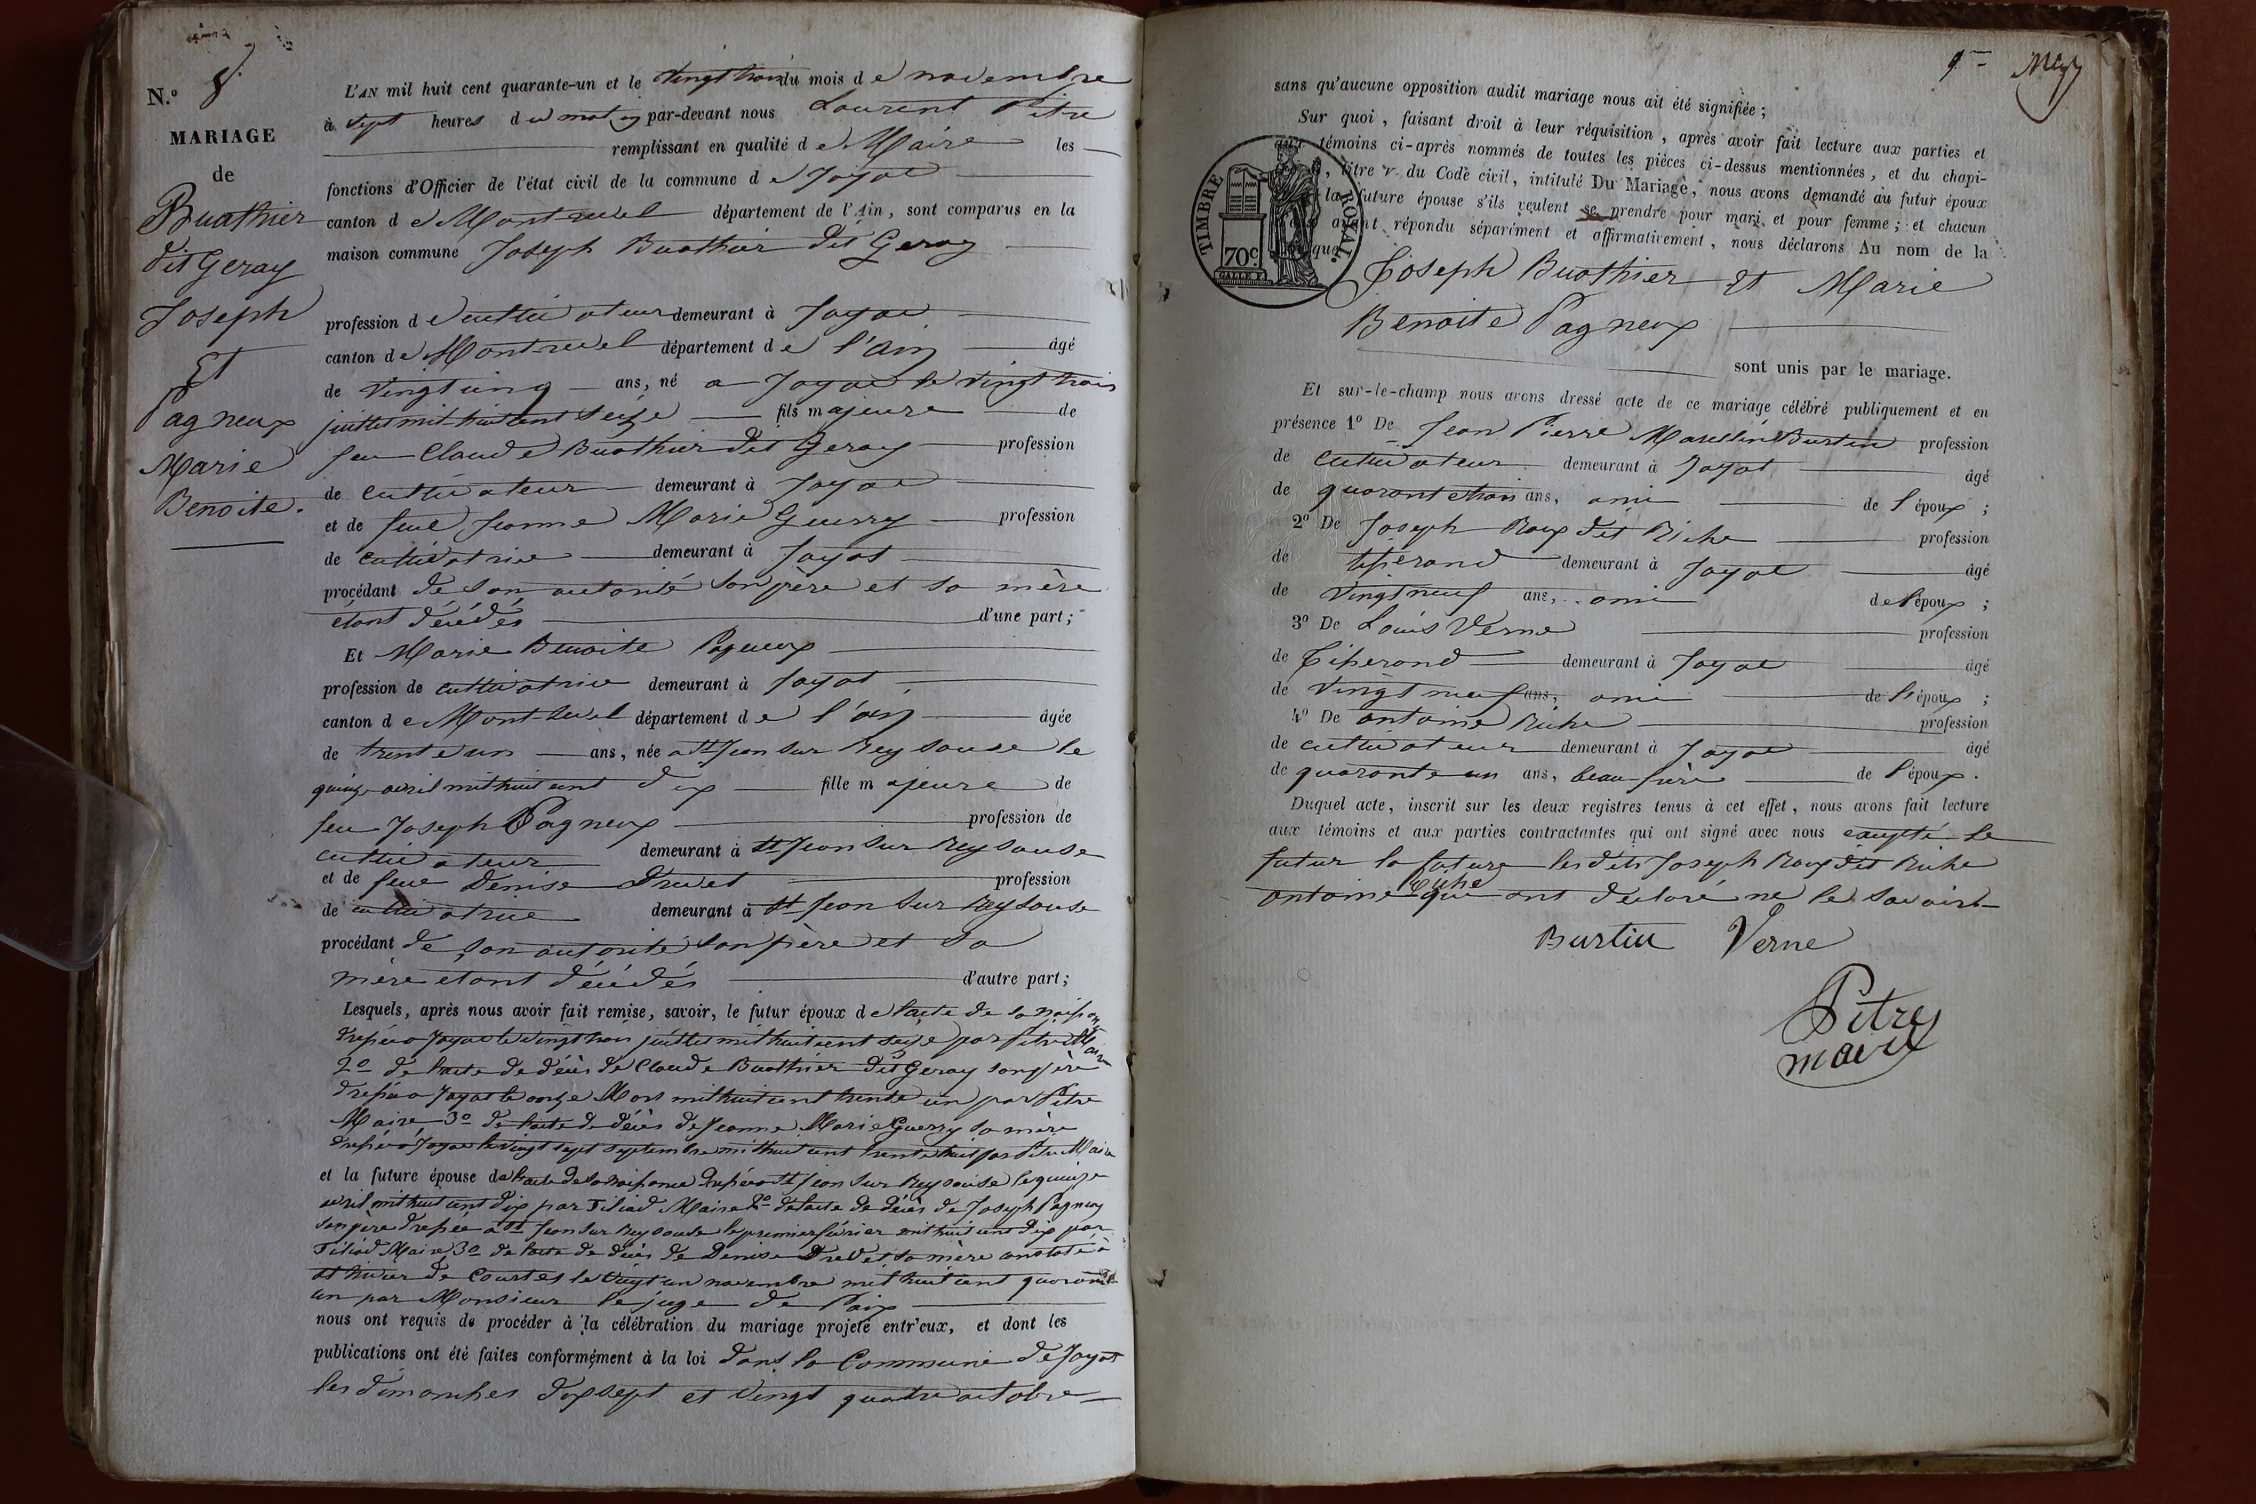 N.º 8.
MARIAGE
de
Buathier
dit Geray
Joseph
Et
Pagneux
Marie
Benoite.
L'AN mil huit cent quarante-un et le vingt trois du mois de novembre
à sept heures du matin par-devant nous Laurent Pitre
remplissant en qualité de Maire les
fonctions d'Officier de l'état civil de la commune de Jayat
canton de Montrevel département de l'Ain, sont comparus en la
maison commune Joseph Buathier dit Geray
profession de cultivateur demeurant à Jayat
canton de Montrevel département de l'ain âgé
de vingt cinq ans, né a Jayat le vingt trois
juillet mil huit cent seize fils majeure de
feu Claude Buathier dit Geray profession
de cultivateur demeurant à Jayat
et de feue Jeanne Marie Guerry profession
de cultivatrice demeurant à Jayat
procédant de son autorité son père et sa mère
étant décédés d'une part;
Et Marie Benoite Pagneux
profession de cultivatrice demeurant à Jayat
canton de Montrevel département de l'ain âgée
de trente un ans, née a St Jean sur Reysouse le
quinze avril mil huit cent dix fille majeure de
feu Joseph Pagneux profession de
cultivateur demeurant à St Jean sur Reysouse
et de feue Denise Drevet profession
de cultivatrice demeurant à St Jean sur Reysouse
procédant de son autorité son père et sa
mère etant décédés d'autre part;
Lesquels, après nous avoir fait remise, savoir, le futur époux de l'acte de sa naissance
dressé a Jayat le vingt trois juillet mil huit cent seize par Pitre Maire
2º de l'acte de décès de Claude Buathier dit Geray son père
dressé a Jayat le onze Mars mil huit cent trente un par Pitre
Maire 3º de l'acte de décès de Jeanne Marie Guerry sa mère
dressé a Jayat le vingt sept septembre mil huit cent trente huit par Pitre Maire
et la future épouse de l'acte de sa naissance dressé a St Jean sur Reysouse le quinze
avril mil huit cent dix par Filiod Maire 2º de l'acte de décès de Joseph Pagneux
son père dressée a St Jean sur Reysouse le premier février mil huit cent dix par
Filiod Maire 3º de l'acte de décès de Denise Drevet sa mère constaté à
St trivier de Courtes le vingt un novembre mil huit cent quarante
un par Monsieur le juge de Paix
nous ont requis de procéder à la célébration du mariage projeté entr'eux, et dont les
publications ont été faites conformément à la loi dans la Commune de Jayat
les dimanches dix sept et vingt quatre octobre
sans qu'aucune opposition audit mariage nous ait été signifiée;
Sur quoi, faisant droit à leur réquisition, après avoir fait lecture aux parties et
aux témoins ci-après nommés de toutes les pièces ci-dessus mentionnées, et du chapi-
titre V du Code civil, intitulé Du Mariage, nous avons demandé au futur époux
la future épouse s'ils veulent se prendre pour mari et pour femme; et chacun
ayant répondu séparément et affirmativement, nous déclarons Au nom de la
que
TIMBRE ROYAL.
70c.
Joseph Buathier et Marie
Benoite Pagneux
sont unis par le mariage.
Et sur-le-champ nous avons dressé acte de ce mariage célébré publiquement et en
présence 1º De Jean Pierre Marcellin Burtin profession
de cultivateur demeurant à Jayat âgé
de quarante trois ans, ami de l'époux;
2º De Joseph Roux dit Riche profession
de tisserand demeurant à Jayat âgé
de vingt neuf ans, ami de l'époux;
3º De Louis Verne profession
de Tisserand demeurant à Jayat âgé
de vingt neuf ans, ami de l'époux;
4º De antoine Riche profession
de cultivateur demeurant à Jayat âgé
de quarante un ans, beau frère de l'époux.
Duquel acte, inscrit sur les deux registres tenus à cet effet, nous avons fait lecture
aux témoins et aux parties contractantes qui ont signé avec nous excepté le
futur la future les dits Joseph Roux dit Riche
antoine Riche qui ont declaré ne le savoir
Burtin Verne
Pitre
maire